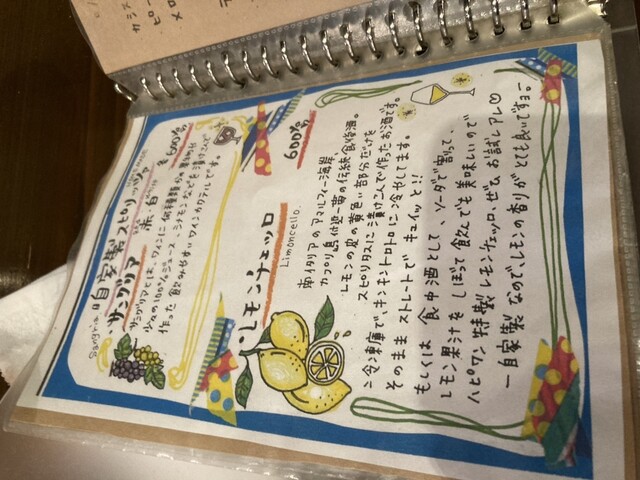 自家製 スピリッツ
Sangria
サングリア 赤・白 各600yen
サングリアとは、ワインに何種類かの果物や
少々の100%ジュース、シナモンなどを漬けこんで
作った飲みやすいワインカクテルです。
レモンチェッロ 600yen
Limoncello.
南イタリアのアマルフィー海岸
カプリ島付近一帯の伝統食後酒。
レモンの皮の黄色い部分だけを
スピリタスに漬けこんで作ったお酒です。
冷凍庫で、キンキントロトロに冷やしてます。
そのまま ストレートで キュイッと!!
もしくは 食中酒として、ソーダで割って、
レモン果汁を しぼって 飲んでも美味しいので
ハピワン特製 レモンチェッロ、ぜひ お試しアレ♡
ー自家製 なのでレモンの香りが とても良いですョー